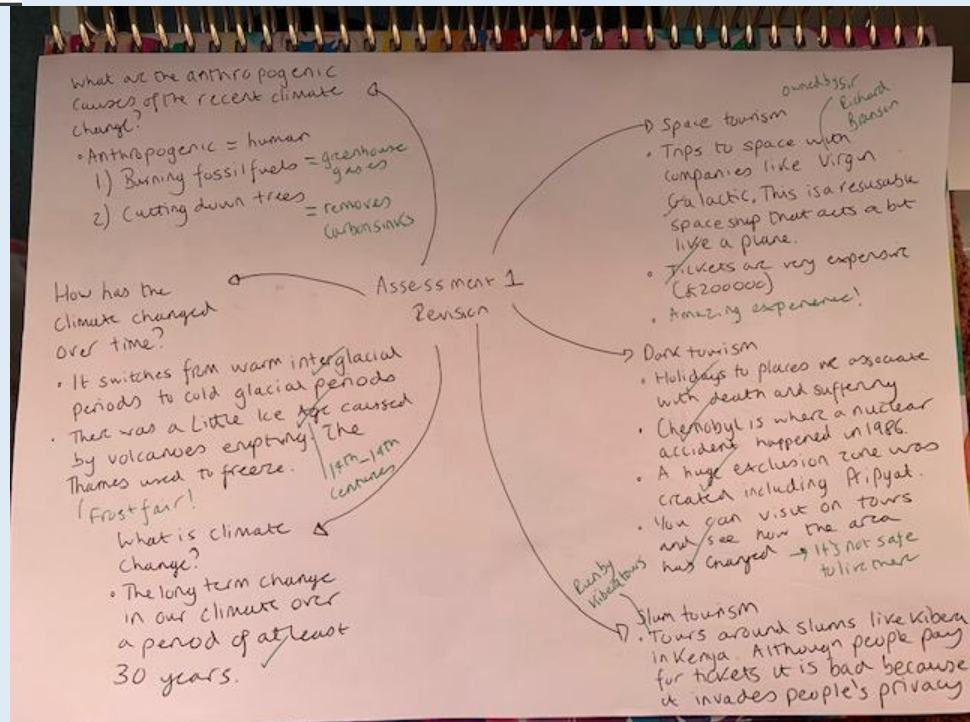 Assessment 1
Revision
What are the anthropogenic
causes of the recent climate
change?
• Anthropogenic = human
1) Burning fossil fuels = greenhouse
gases
2) Cutting down trees = removes
carbon sinks
How has the
climate changed
over time?
• It switches from warm interglacial
periods to cold glacial periods
• There was a Little Ice Age caused
by volcanoes erupting. The
Thames used to freeze.
Frost fair!
14th-19th
centuries
What is climate
change?
• The long term change
in our climate over
a period of at least
30 years.
Space tourism
owned by Sir
Richard
Branson
• Trips to space with
companies like Virgin
Galactic. This is a resusable
space ship that acts a bit
like a plane.
• Tickets are very expensive
(£200000)
• Amazing experience!
Dark tourism
• Holidays to places we associate
with death and suffering
• Chernobyl is where a nuclear
accident happened in 1986.
• A huge exclusion zone was
created including Pripyat.
• You can visit on tours
and see how the area
has changed → It's not safe
to live there
Run by
Kibera tours
Slum tourism
• Tours around slums like Kibera
in Kenya. Although people pay
for tickets it is bad because
it invades people's privacy